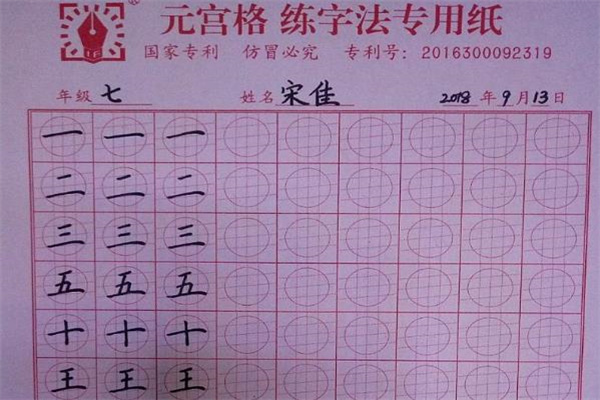 元宫格 练字法专用纸
国家专利 仿冒必究 专利号：2016300092319
年级 七 姓名 宋佳 2018 年 9 月 13 日
一 一 一
二 二 二
三 三 三
五 五 五
十 十 十
王 王 王